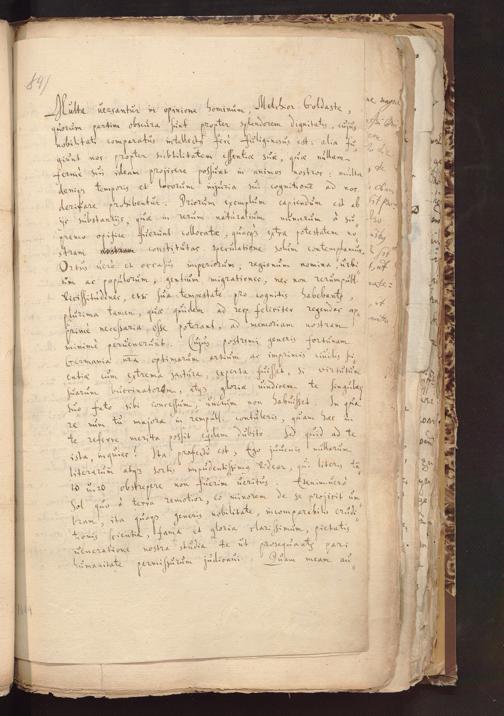 841
Multa uersantur in opinione hominum, Melchior Goldaste,
quorum partim obscura sunt propter splendorem dignitatis, cujus
nobilitati comparatus intellectus fere fuliginosus est: alia fu¬
giunt nos propter subtilitatem essentiæ suæ, quæ nullam
ferme sui ideam projicere possunt in animos nostros: multa
deniq temporis et locorum injuria sui cognitione ad nos
deriuare prohibentur. Priorum exemplum capiendum est ab
ijs substantijs, quæ in rerum naturalium numerum à su
premo opifice fuerunt collocatæ, quæq extra potestatem no
stram constitutas speculatione solum contemplamur.
Ortus uerò et occasus imperiorum, regionum nomina, urbi
um ac populorum, gentium migrationes, nec non rerumpubl.
uicissitudines, etsi sua tempestate pro cognitis habebantur,
plurima tamen, quæ quidem ad remp. feliciter regendam ap
primè necessaria esse poterant, ad memoriam nostram
minimè peruenerunt. Cujus postremi generis fortunam
Germania nostra optimarum artium ac imprimis ciuilis sci
entiæ cum extrema jactura experta fuisset, si uirtutum
suarum buccinatorem, atq gloriæ uindicem te singulari
suo fato sibi concessum, unicum non habuisset. In qua
re num tu majora in rempubl. contuleris, quam hæc in
te referre merita possit equidem dubito. Sed quid ad te
ista, inquies? Ita profectò est, Ego juuenis nullarum
literarum atq sortis impudentissimus uidear, qui literis tan
to uiro obstrepere non fuerim ueritus. Enimuerò
Sol quò à terra remotior, eò minorem de se projicit um
bram, ita quoq generis nobilitate, incomparabilis erudi¬
tionis scientia, fama et gloria clarissimum, pietatis
ueneratione nostra studia te ut prosequantur pari
humanitate permissurum judicaui. Quam meam au¬